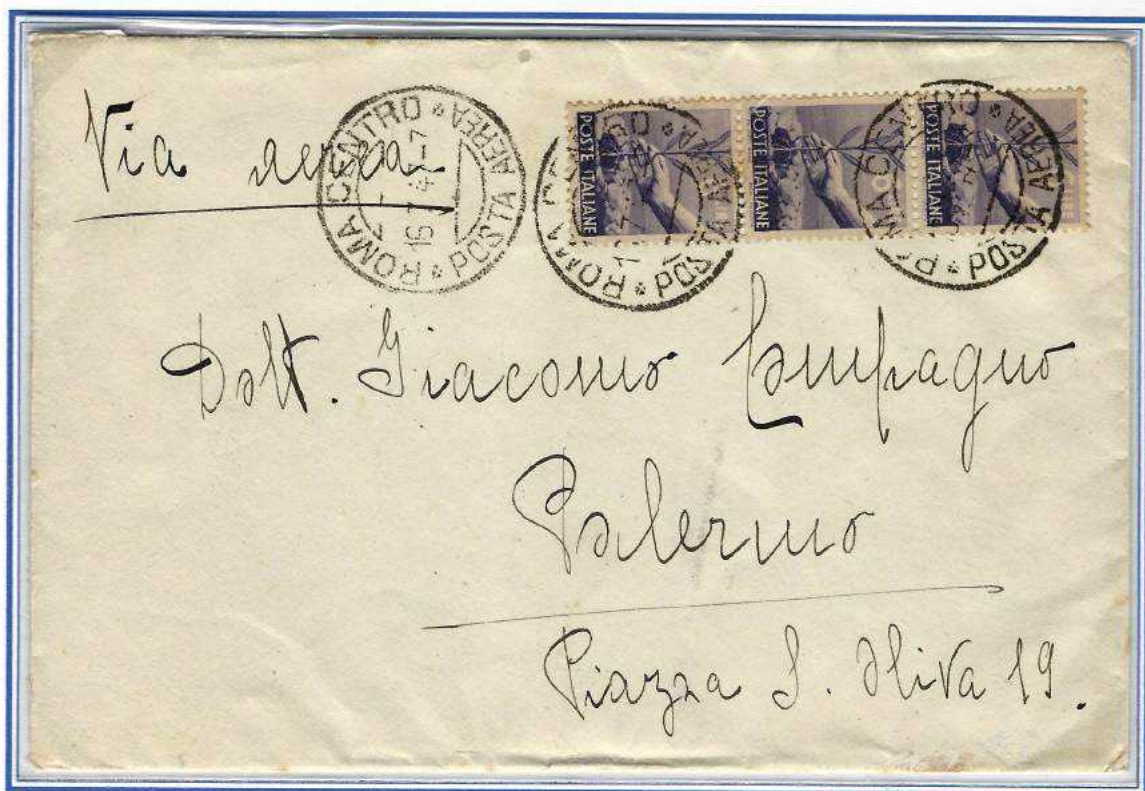 Via aerea
ROMA CENTRO * POSTA AEREA *
POSTE ITALIANE
POSTE ITALIANE
POSTE ITALIANE
ROMA * POSTA
POSTA AEREA *
Dott. Giacomo Compagno
Palermo
Piazza S. Oliva 19.